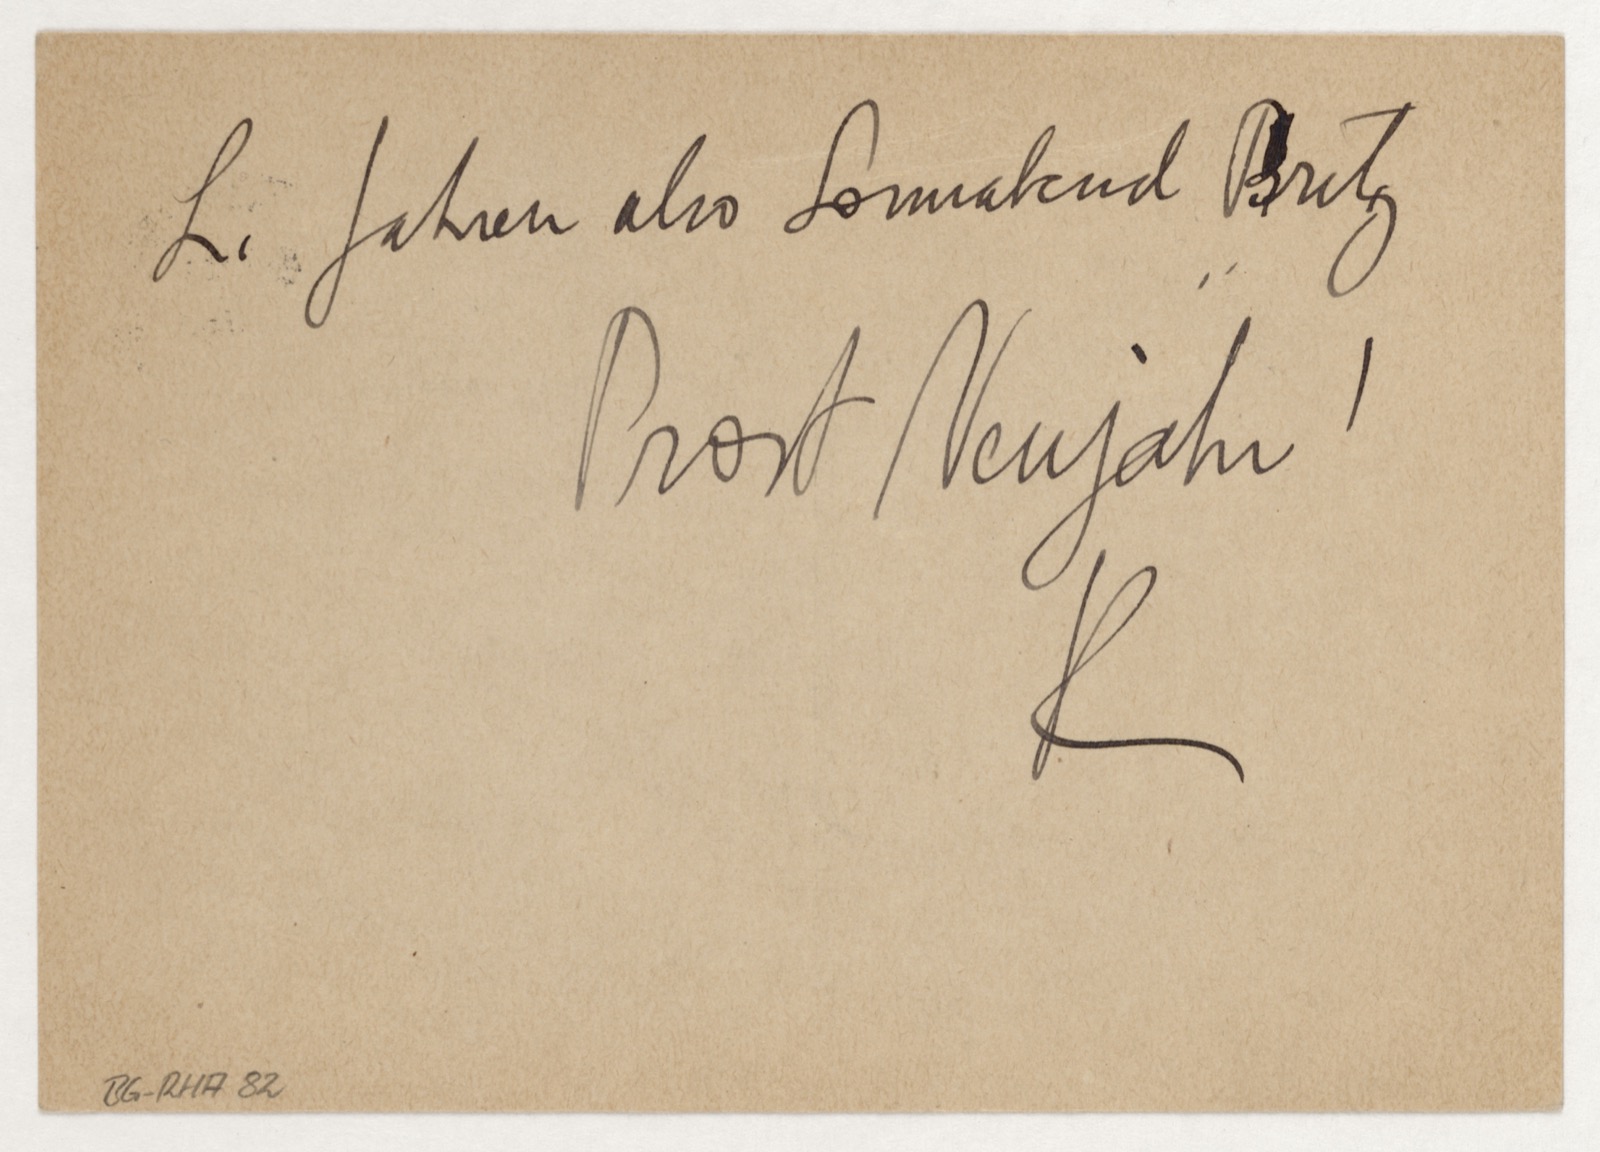 L. fahren also Sonnabend Britz
Prost Neujahr !
K
BG-RHA 82